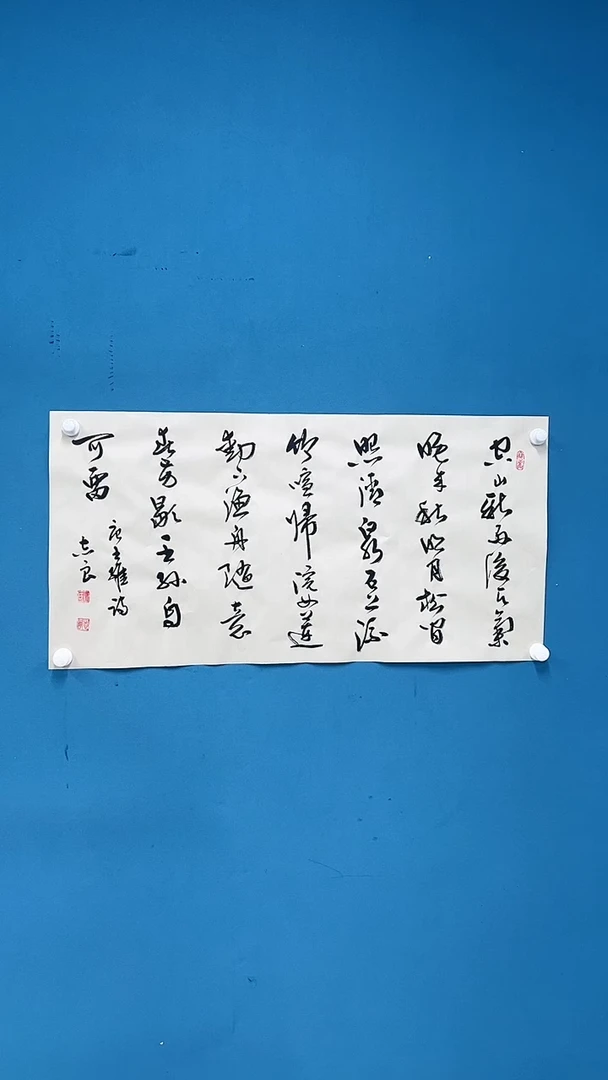 空山新雨後天氣
晚来秋明月松間
照清泉石上流
竹喧歸浣女蓮
動下漁舟隨意
春芳歇王孫自
可留
唐王維詩
志良